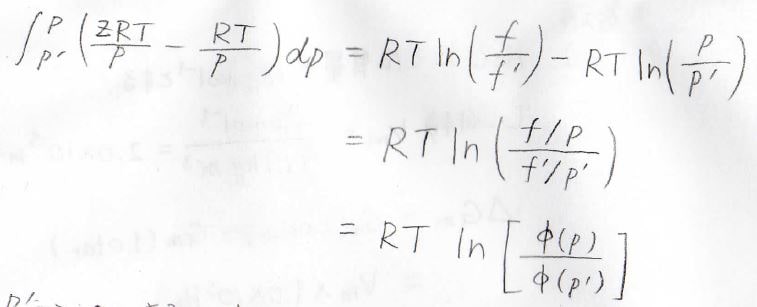 ∫_{p'}^{p} (ZRT/p − RT/p) dp = RT ln(f/f') − RT ln(p/p')
= RT ln((f/p)/(f'/p'))
= RT ln[ϕ(p)/ϕ(p')]